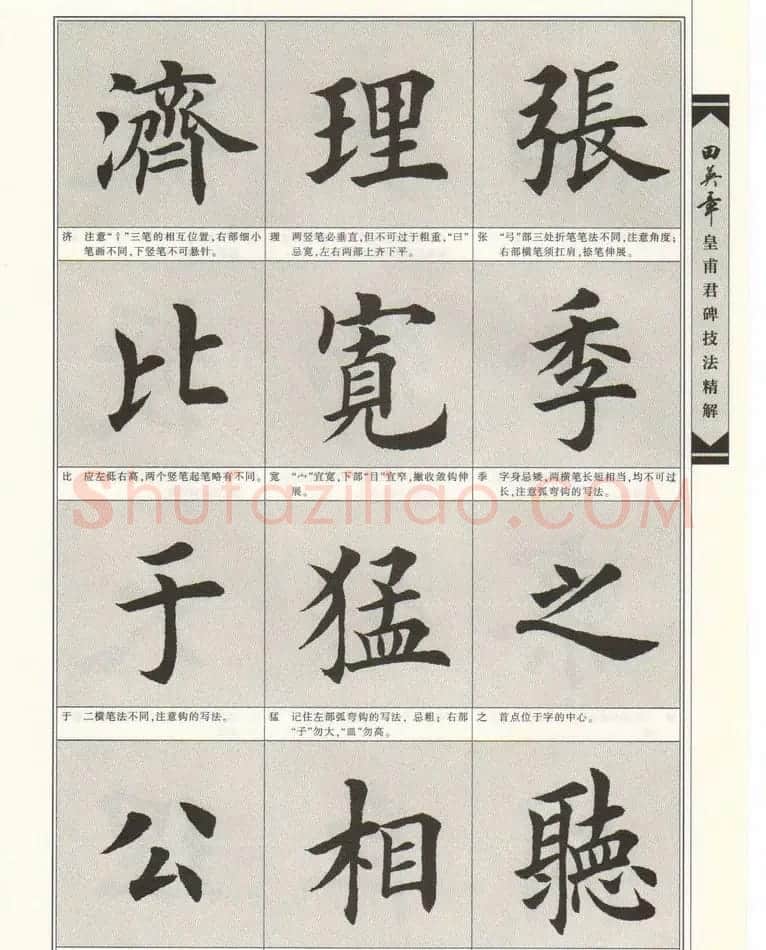 田英章
皇甫君碑技法精解
張
张 “弓”部三处折笔笔法不同,注意角度;
右部横笔须扛肩,捺笔伸展。
季
季 字身忌矮,两横笔长短相当,均不可过
长,注意弧弯钩的写法。
之
之 首点位于字的中心。
聽
理
理 两竖笔必垂直,但不可过于粗重,“曰”
忌宽,左右两部上齐下平。
寬
宽 “宀”宜宽,下部“目”宜窄,撇收敛钩伸
展。
猛
猛 记住左部弧弯钩的写法,忌粗;右部
“子”勿大,“皿”勿高。
相
濟
济 注意“氵”三笔的相互位置,右部细小
笔画不同,下竖笔不可悬针。
比
比 应左低右高,两个竖笔起笔略有不同。
于
于 二横笔法不同,注意钩的写法。
公
Shufaziliao.COM